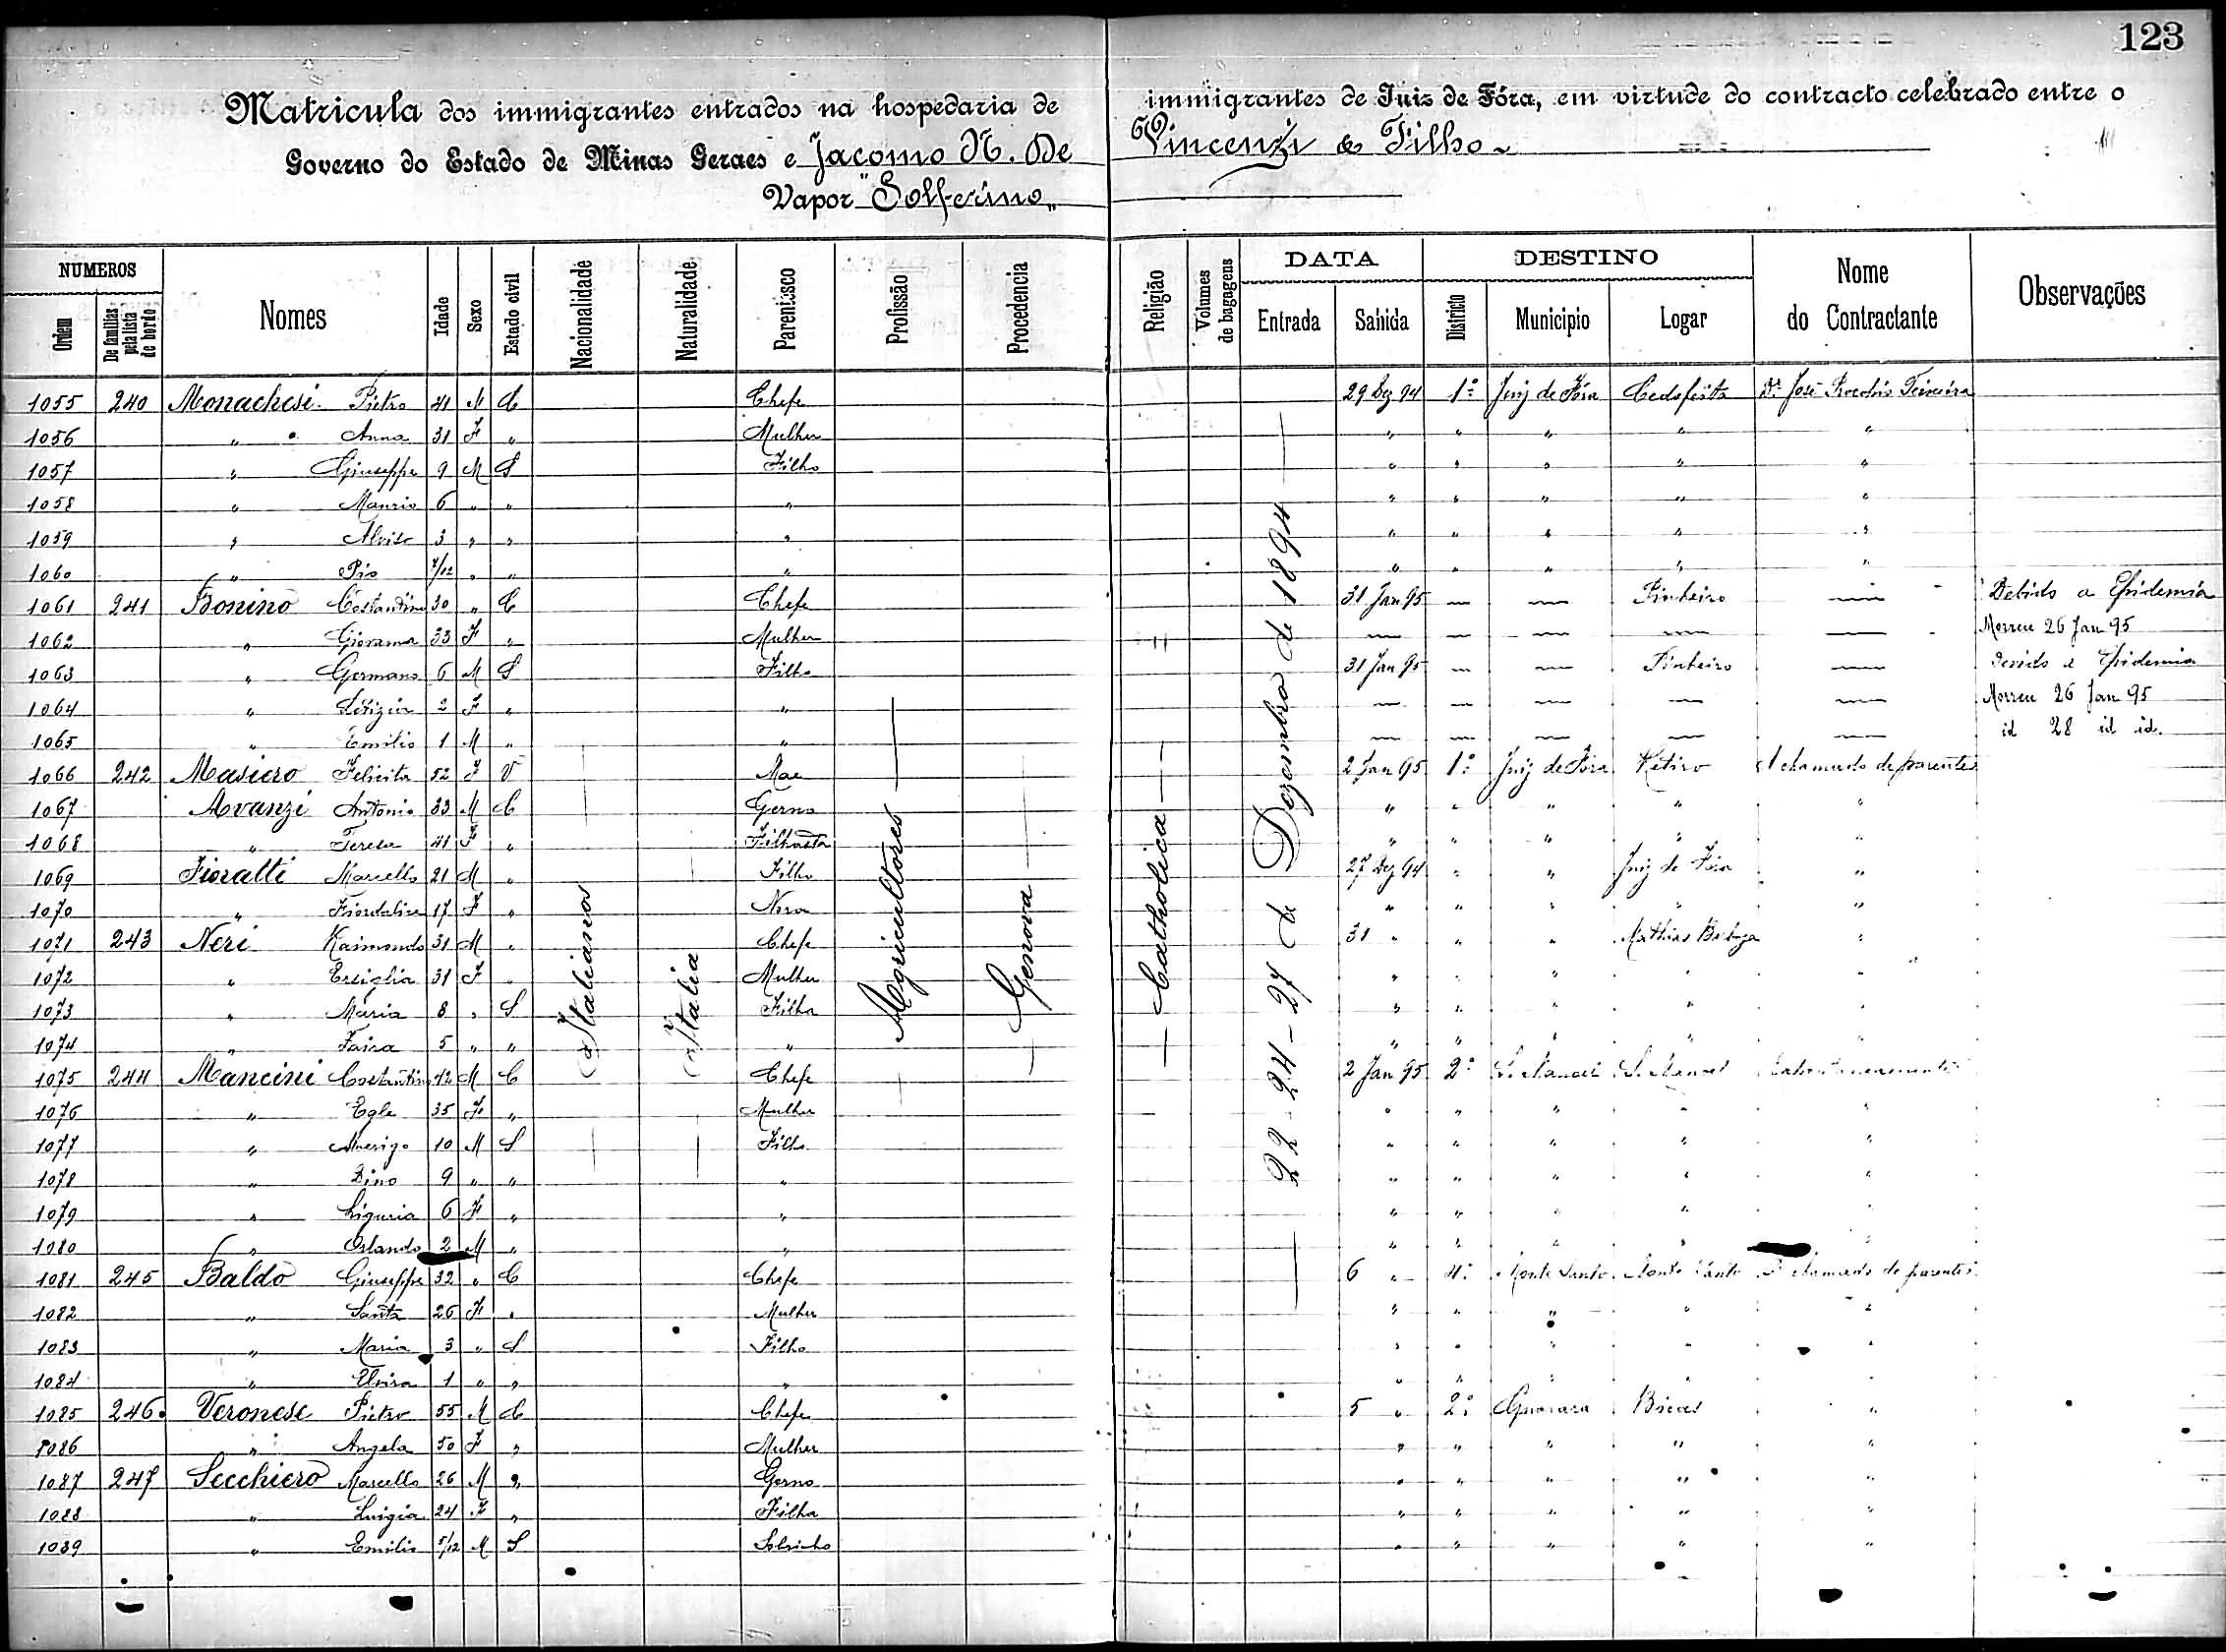 123
Matricula dos immigrantes entrados na hospedaria de immigrantes de Juiz de Fóra, em virtude do contracto celebrado entre o
Governo do Estado de Minas Geraes e Jacomo N. De Vincenzi & Filho
Vapor "Solferino"
NUMEROS DATA DESTINO
Ordem De familias pela lista de bordo Nomes Idade Sexo Estado civil Nacionalidade Naturalidade Parentesco Profissão Procedencia Religião Volumes de bagagens Entrada Sahida Districto Municipio Logar Nome do Contractante Observações
Italianos Italia Agricultores Genova Catholica 22-24-27 de Dezembro de 1894
1055 240 Monachesi Pietro 41 M C Chefe 29 Dez 94 1º Juiz de Fóra Cedofeita Dr. José Teixeira
1056 " Anna 31 F " Mulher " " " " "
1057 " Giuseppe 9 M S Filho " " " " "
1058 " Maurio 6 " " " " " " " "
1059 " 3 " " " " " " " "
1060 " Pio 7/12 " " " " " " " "
1061 241 Bonino Costantino 30 " C Chefe 31 Jan 95 — — Pinheiro — Debido a Epidemia
1062 " 33 F " Mulher — — — — — Morreu 26 Jan 95
1063 " Germano 6 M S Filho 31 Jan 95 — — Pinheiro — Devido a Epidemia
1064 " Letizia 2 F " " — — — — — Morreu 26 Jan 95
1065 " Emilio 1 M " " — — — — — id 28 id id.
1066 242 Masiero Felicita 52 F V Mae 2 Jan 95 1º Juiz de Fóra Retiro A chamado de parentes
1067 Avanzi Antonio 33 M C Genro " " " " "
1068 " Teresa 41 F " Filhasta " " " " "
1069 Fioratti Marcello 21 M " Filho 27 Dez 94 " " Juiz de Fóra "
1070 " Fiordalise 17 F " Nora " " " " "
1071 243 Neri Raimondo 31 M " Chefe 31 " " " Mathias Barboza "
1072 " Ersiglia 31 F " Mulher " " " " "
1073 " Maria 8 " S Filha " " " " "
1074 " 5 " " " " " " " "
1075 244 Mancini Costantino 42 M C Chefe 2 Jan 95 2º S. Manoel S. Manoel
1076 " Egle 35 F " Mulher " " " " "
1077 " Amerigo 10 M S Filho " " " " "
1078 " Dino 9 " " " " " " " "
1079 " Liguria 6 F " " " " " " "
1080 " Orlando 2 M " " " " " " "
1081 245 Baldo Giuseppe 32 " C Chefe 6 " 4º Monte Santo Monte Santo A chamado de parentes
1082 " Santa 26 F " Mulher " " " " "
1083 " Maria 3 " S Filho " " " " "
1084 " Elvira 1 " " " " " " " "
1085 246 Veronese Pietro 55 M C Chefe 5 " 2º Guarara Bicas "
1086 " Angela 50 F " Mulher " " " " "
1087 247 Secchiero Marcello 26 M " Genro " " " " "
1088 " Luigia 24 F " Filha " " " " "
1089 " Emilio 5/12 M S Sobrinho " " " " "